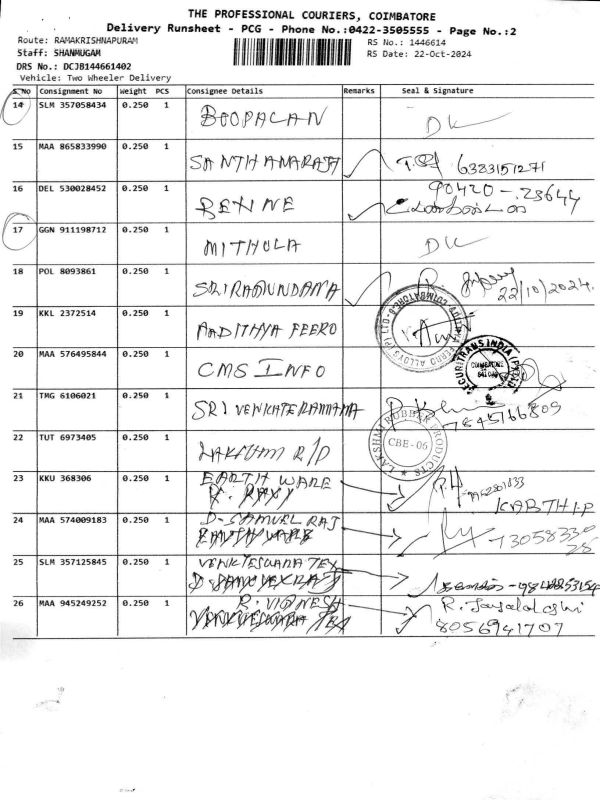 THE PROFESSIONAL COURIERS, COIMBATORE
Delivery Runsheet - PCG - Phone No.:0422-3505555 - Page No.:2
Route: RAMAKRISHNAPURAM
RS No.: 1446614
Staff: SHANMUGAM
RS Date: 22-Oct-2024
DRS No.: DCJB144661402
Vehicle: Two Wheeler Delivery
S.No Consignment No Weight PCS Consignee Details Remarks Seal & Signature
14 SLM 357058434 0.250 1 BOOPALAN DK
15 MAA 865833990 0.250 1 SANTHANARAJ 6383151271
16 DEL 530028452 0.250 1 90420-23644
17 GGN 911198712 0.250 1 MITHULA DK
18 POL 8093861 0.250 1 22/10/2024.
19 KKL 2372514 0.250 1 AADITHYA FEERO
20 MAA 576495844 0.250 1 CMS INFO
SECURITRANS INDIA (P) LTD
21 TMG 6106021 0.250 1 SRI VENKATERAMANA
22 TUT 6973405 0.250 1 LAKSHMI R/D
LAKSHMI RUBBER PRODUCTS
CBE-06
23 KKU 368306 0.250 1 EARTH WARE
KARTHI.P
24 MAA 574009183 0.250 1 D-SAMUEL RAJ
25 SLM 357125845 0.250 1 VENKTESWARA TEX
26 MAA 945249252 0.250 1 R. VIGNESH
8056941707